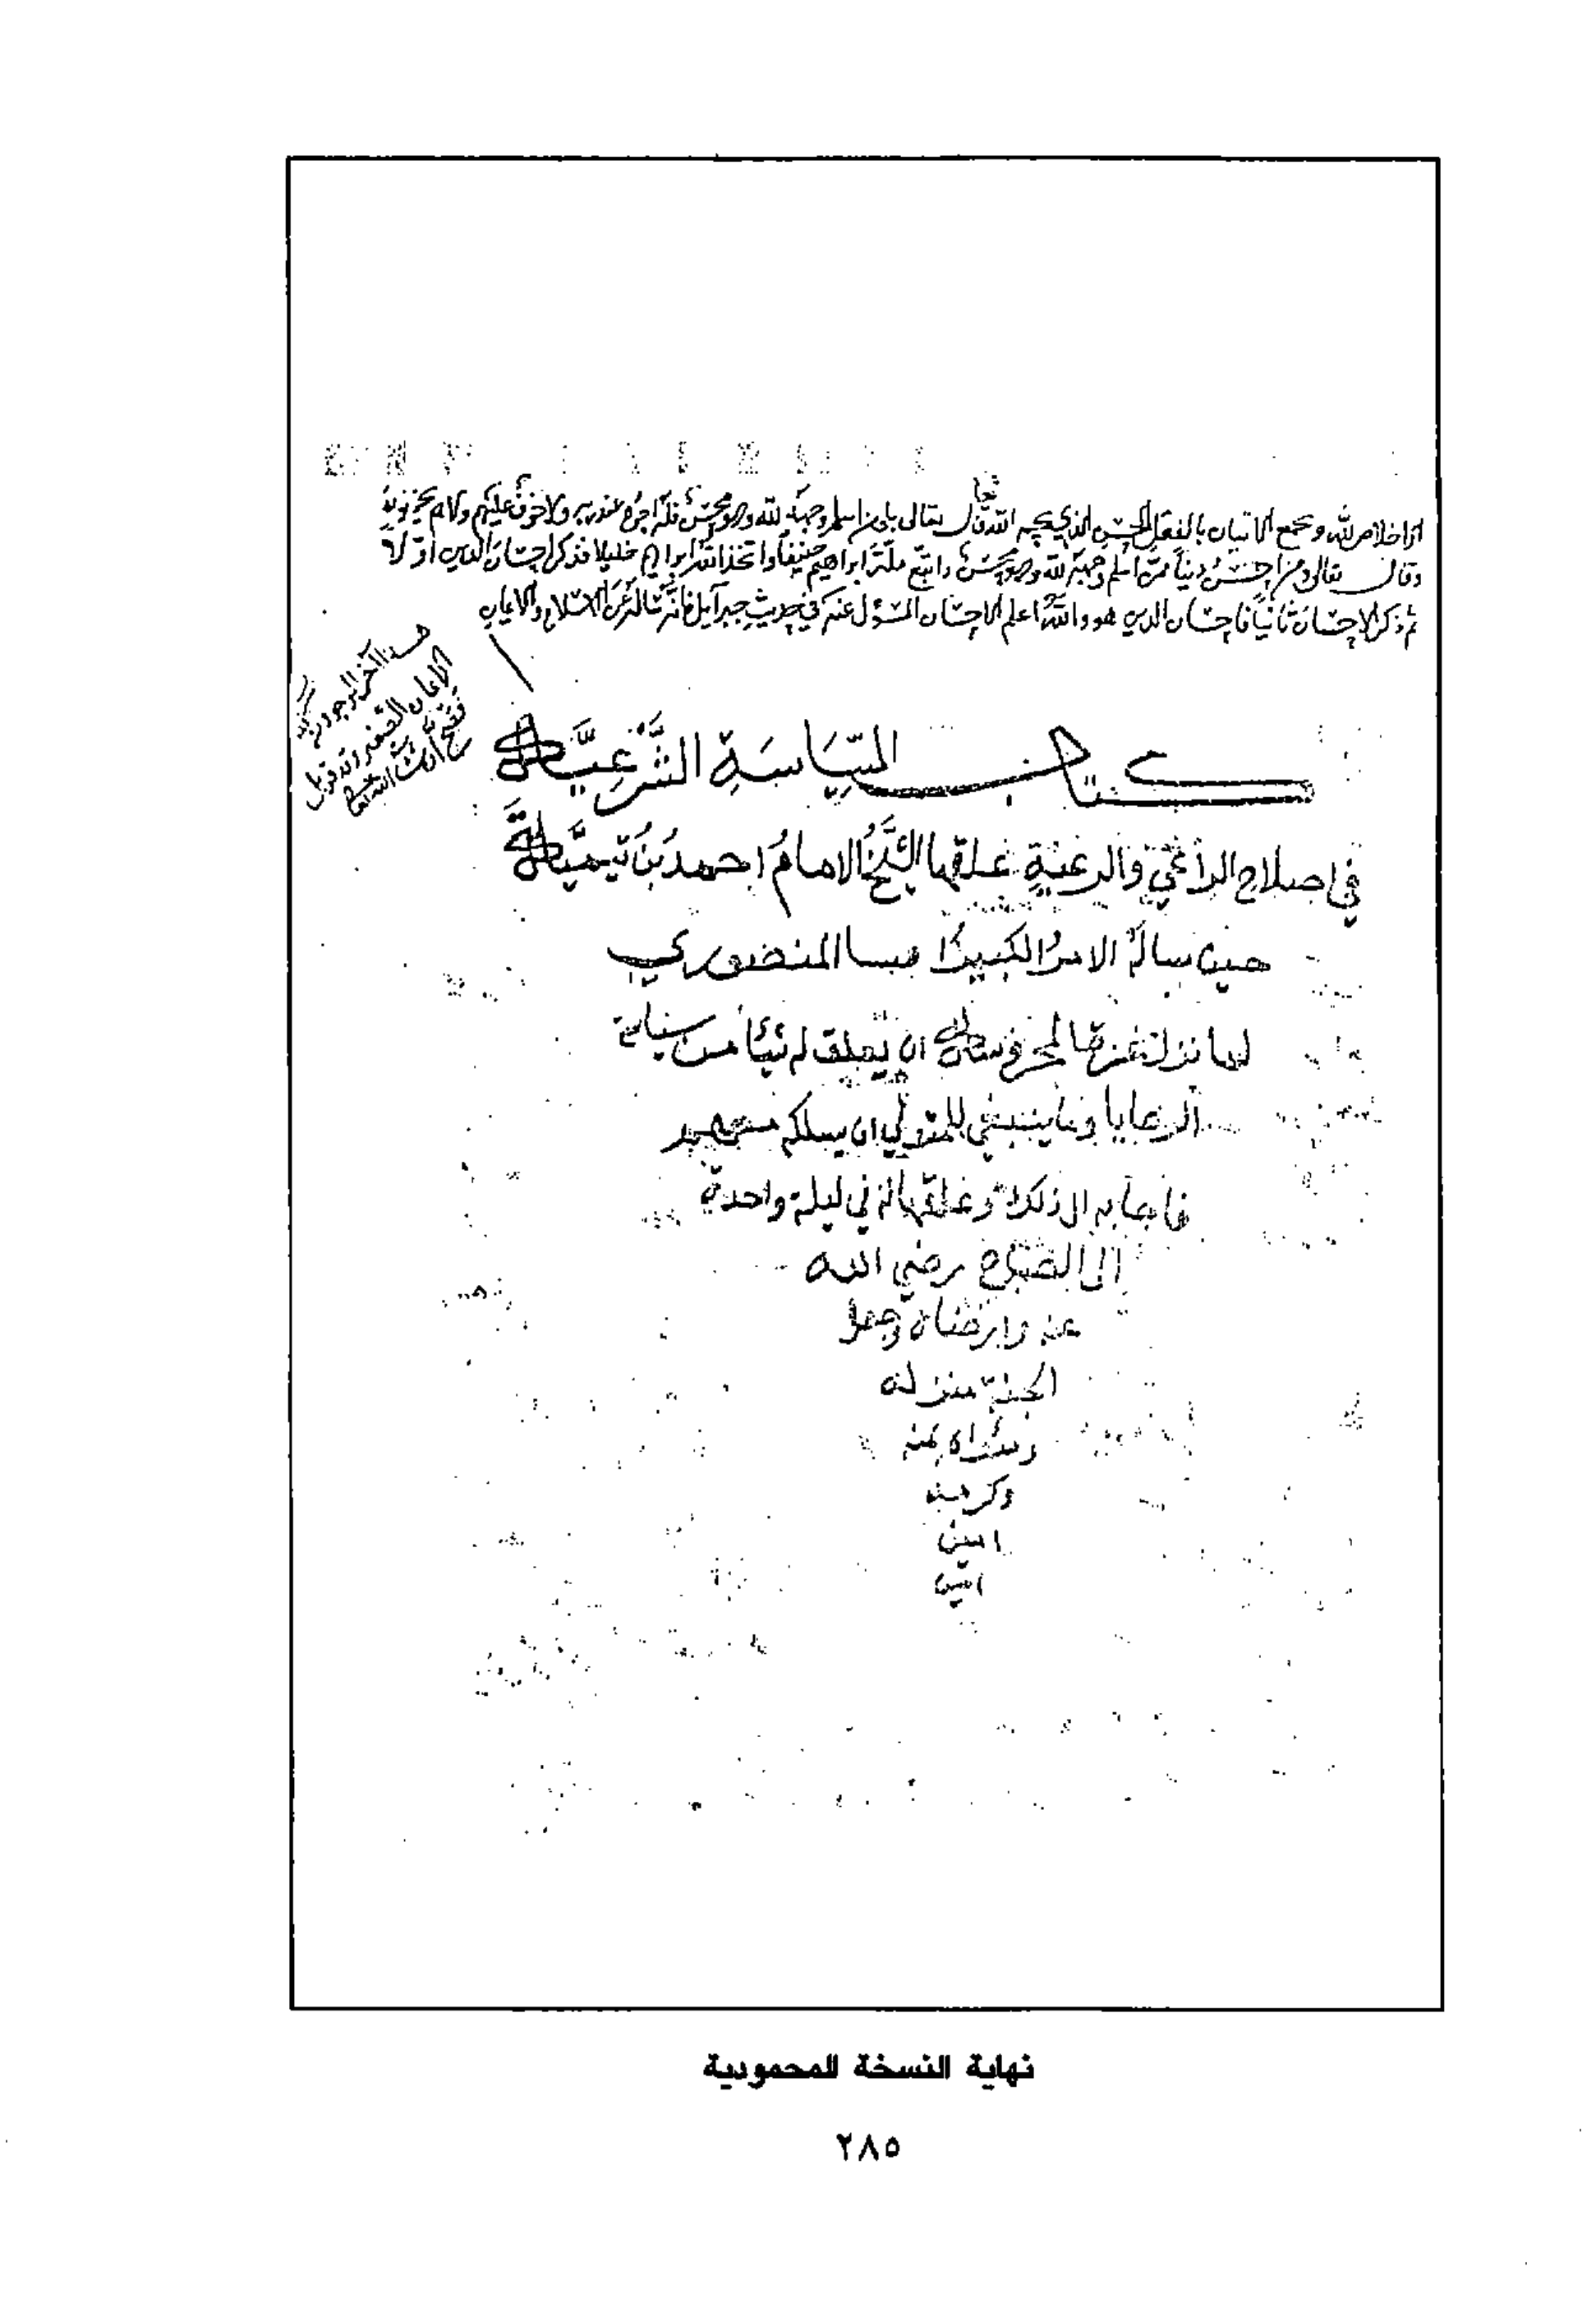 اخلاص لله ويجمع الاتيان بالفعل الحسن الذي يحبه الله قال تعالى بلى من اسلم وجهه لله وهو محسن فله اجره عند ربه ولا خوف عليهم ولا هم يحزنون
وقال تعالى ومن احسن دينا ممن اسلم وجهه لله وهو محسن واتبع ملة ابراهيم حنيفا واتخذ الله ابراهيم خليلا فذكر احسان الدين اولا
ثم ذكر الاحسان ثانيا فاحسان الدين هو والله اعلم الاحسان المسؤل عنه في حديث جبرآيل فانه سأله عن الاسلام والايمان
كتاب السِّيَاسَةِ الشَّرْعِيَّة
في اصلاح الراعي والرعية علقها الشيخ الامامُ احمد بن تيميَّة
حين ساله الامير الكبير المنصوري
لما نزل المحروسة ان يعلق له شيئا من سياسة
الرعايا وما ينبغي للمتولي ان يسلكه
فاجابه الى ذلك وعلقها له في ليلة واحدة
الى الصباح رضي الله
عنه وارضاه وجعل
الجنة منزله
بمنه
وكرمه
امين
امين
نهاية النسخة المحمودية
٢٨٥